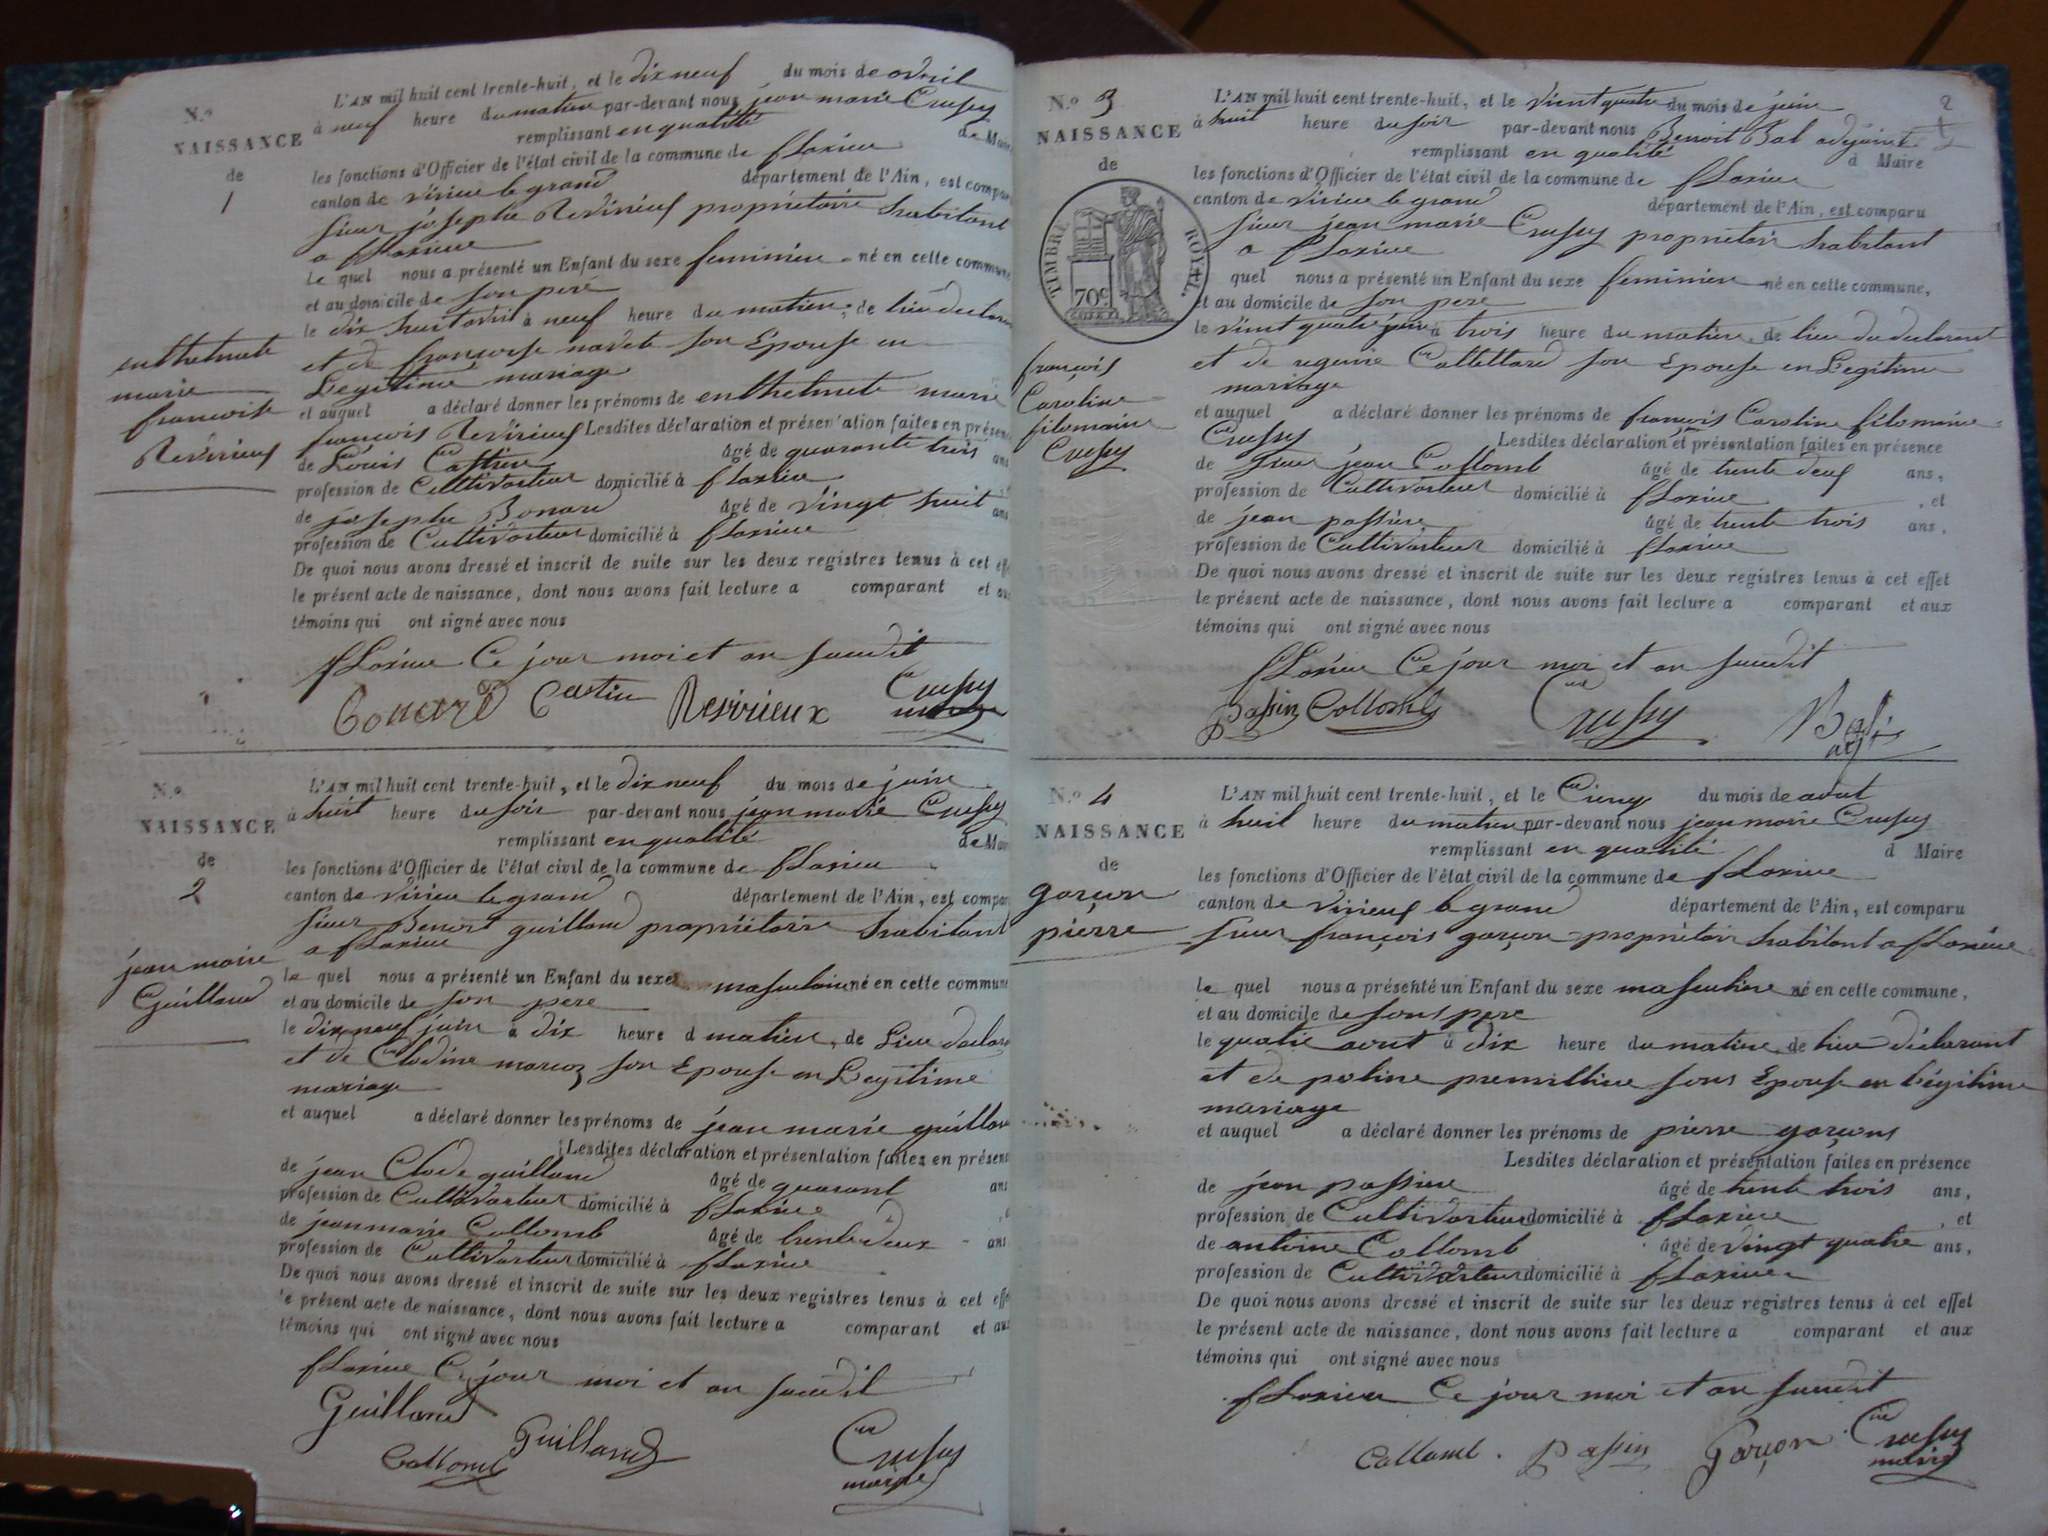 N.º
NAISSANCE
de
1
enthelmete
marie
francoise
Revirieux
L'AN mil huit cent trente-huit, et le dix neuf du mois de avril
à neuf heure du matien par-devant nous jean marie Crussy
remplissant en qualité de Maire
les fonctions d'Officier de l'état civil de la commune de fLaxieu
canton de virieu le grand département de l'Ain, est compar
sieur josephe Revirieux propriétaire habitant
a fLaxieu
le quel nous a présenté un Enfant du sexe feminien né en cette commune
et au domicile de son pere
le dix huit avril à neuf heure du matien, de lieu declaran
et de francoise navete son Epouse en
Legitime mariage
et auquel a déclaré donner les prénoms de enthelmete marie
françois Revirieux Lesdites déclaration et présentation faites en présen
de Louis Castien âgé de quarante trois ans
profession de Cultivasteur domicilié à fLaxieu
de josephe Bonard âgé de vingt huit ans
profession de Cultivasteur domicilié à fLaxieu
De quoi nous avons dressé et inscrit de suite sur les deux registres tenus à cet eff
le présent acte de naissance, dont nous avons fait lecture a comparant et aux
témoins qui ont signé avec nous
fLaxieu Ce jour moi et an susdit
Bonard Castin Revirieux Crussy
maire
N.º
NAISSANCE
de
2
jean marie
Guilland
L'AN mil huit cent trente-huit, et le dix neuf du mois de juin
à huit heure du soir par-devant nous jean marie Crussy
remplissant en qualité de Mair
les fonctions d'Officier de l'état civil de la commune de fLaxieu
canton de virieu le grand département de l'Ain, est compar
sieur Benoit guilland propriétaire habitant
a fLaxieu
le quel nous a présenté un Enfant du sexe masculien né en cette commune
et au domicile de son pere
le dix neuf juin à dix heure d matien, de Lieu declar
et de Clodine marcoz son Epouse en Legitime
mariage
et auquel a déclaré donner les prénoms de jean marie guillan
Lesdites déclaration et présentation faites en présen
de jean Clode guilland âgé de quarant ans
profession de Cultivasteur domicilié à fLaxieu
de jean marie Collomb âgé de trente deux ans
profession de Cultivasteur domicilié à fLaxieu
De quoi nous avons dressé et inscrit de suite sur les deux registres tenus à cet eff
le présent acte de naissance, dont nous avons fait lecture a comparant et aux
témoins qui ont signé avec nous
fLaxieu Ce jour moi et an susdit
Guilland
Collomb Guilland Crussy
maire
2
N.º 3
NAISSANCE
de
TIMBRE ROYAL.
70c
françois
Caroline
filomaine
Crussy
L'AN mil huit cent trente-huit, et le vient quatre du mois de juin
à huit heure du soir par-devant nous Benoit Bal adjoint
remplissant en qualité d Maire
les fonctions d'Officier de l'état civil de la commune de fLaxieu
canton de virieu le grand département de l'Ain, est comparu
sieur jean marie Crussy proprietair habitant
a fLaxieu
quel nous a présenté un Enfant du sexe feminien né en cette commune,
et au domicile de son pere
le vient quatre juin à trois heure du matien, de lieu du declarent
et de Collettard son Epouse en Legitime
mariage
et auquel a déclaré donner les prénoms de françois Caroline filomaine
Crussy Lesdites déclaration et présentation faites en présence
de sieur jean Collomb âgé de trente deux ans,
profession de Cultivasteur domicilié à fLaxieu , et
de jean passien âgé de trente trois ans,
profession de Cultivasteur domicilié à fLaxieu
De quoi nous avons dressé et inscrit de suite sur les deux registres tenus à cet effet
le présent acte de naissance, dont nous avons fait lecture a comparant et aux
témoins qui ont signé avec nous
fLaxieu Ce jour moi et an susdit
Passin Collomb Crussy Bal
adj
N.º 4
NAISSANCE
de
garçon
pierre
L'AN mil huit cent trente-huit, et le Cienq du mois de aout
à huit heure du matien par-devant nous jean marie Crussy
remplissant en qualité d Maire
les fonctions d'Officier de l'état civil de la commune de fLaxieu
canton de virieux le grand département de l'Ain, est comparu
sieur françois garçon proprietair habitant a fLaxieu
le quel nous a présenté un Enfant du sexe masculien né en cette commune,
et au domicile de sons pere
le quatre aout à dix heure du matine, de lieu déclarant
et de poline premillieu sons Epouse en légitime
mariage
et auquel a déclaré donner les prénoms de pierre garçons
Lesdites déclaration et présentation faites en présence
de jean passien âgé de trente trois ans,
profession de Cultivasteur domicilié à fLaxieu , et
de antoine Collomb âgé de vingt quatre ans,
profession de Cultivasteur domicilié à fLaxieu
De quoi nous avons dressé et inscrit de suite sur les deux registres tenus à cet effet
le présent acte de naissance, dont nous avons fait lecture a comparant et aux
témoins qui ont signé avec nous
fLaxieu Ce jour moi et an susdit
Collomb Passin Garçon Crussy
maire